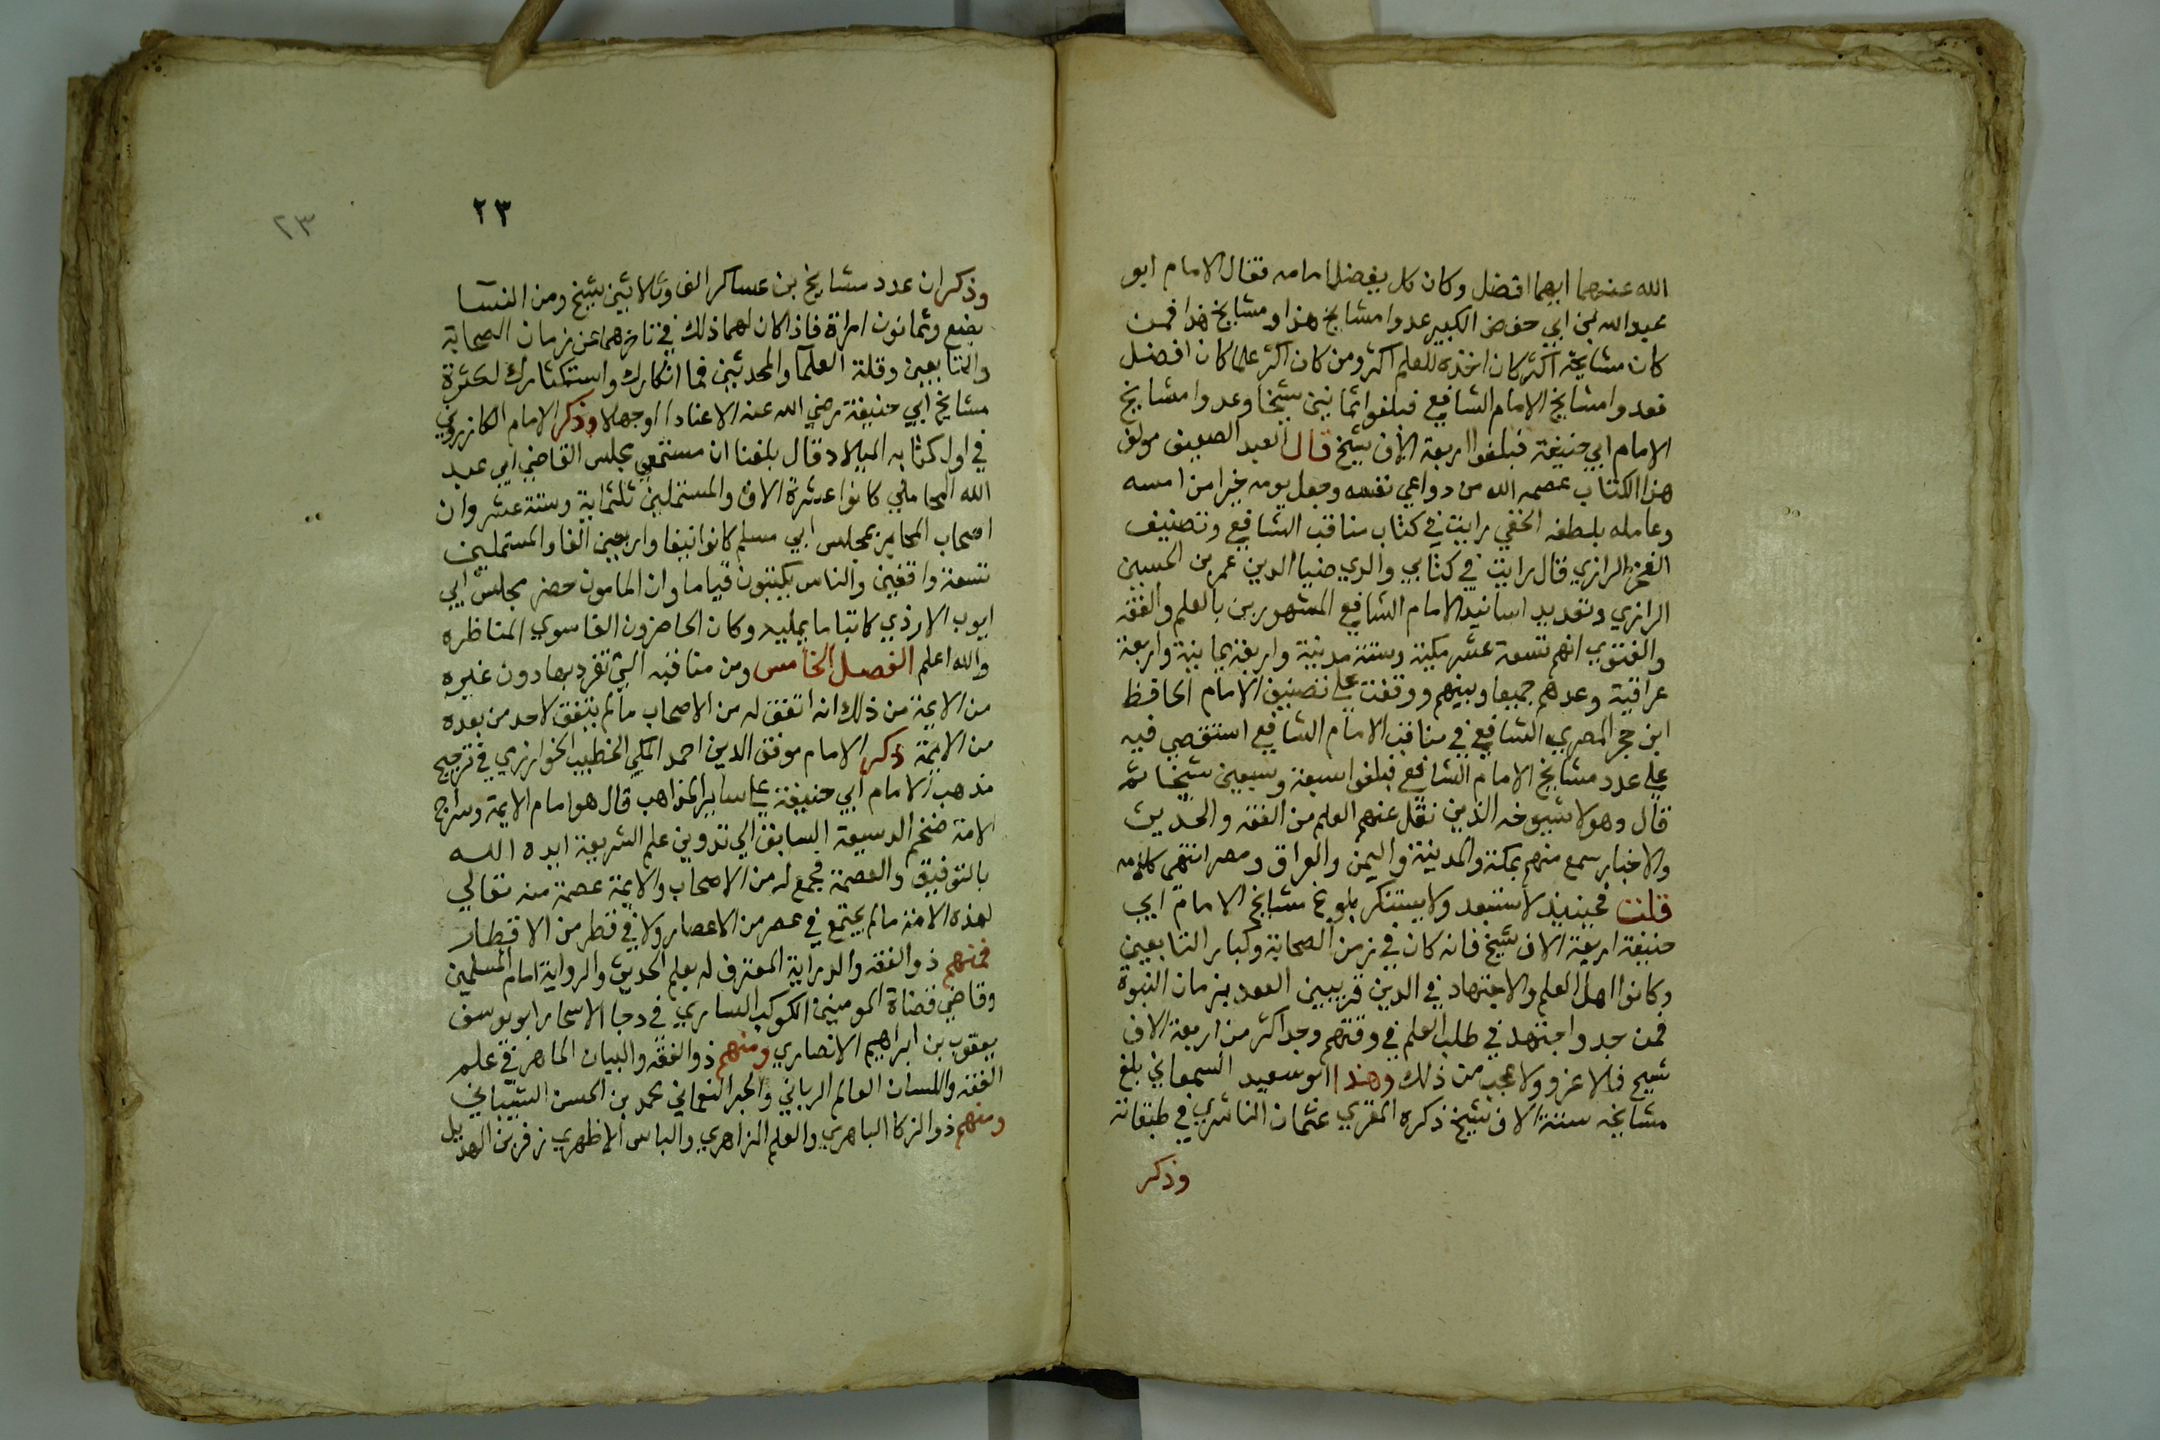 الله عنهما ايهما افضل وكان كل يفضل امامه فقال الامام ابو
عبد الله بن ابي حفص الكبير عدوا مشايخ هذا ومشايخ هذا فمن
كان مشايخه اكثر كان اخذه للعلم اكثر ومن كان اكثر علما كان افضل
فعدوا مشايخ الامام الشافعي فبلغوا ثمانين شيخا وعدوا مشايخ
الامام ابي حنيفة فبلغوا اربعة الاف شيخ قال العبد الضعيف مولف
هذا الكتاب عصمه الله من دواعي نفسه وجعل يومه خيرا من امسه
وعامله بلطفه الخفي رايت في كتاب مناقب الشافعي وتصنيف
الفخر الرازي قال رايت في كتابي والدي ضيا الدين عمر بن الحسين
الرازي وتعديد اسانيد الامام الشافعي المشهورين بالعلم والفقه
والفتوي انهم تسعة عشر مكية وستة مدنية واربعة يمانية واربعة
عراقية وعدهم جميعا وبينهم ووقفت علي تصنيف الامام الحافظ
ابن حجر المصري الشافعي في مناقب الامام الشافعي استقصي فيه
علي عدد مشايخ الامام الشافعي فبلغوا سبعة وسبعين شيخا ثم
قال وهولا شيوخه الذين نقل عنهم العلم من الفقه والحديث
والاخبار سمع منهم بمكة والمدينة واليمن والعراق ومصر انتهى كلامه
قلت فحينيذ لا يستبعد ولا يستنكر بلوغ مشايخ الامام ابي
حنيفة اربعة الاف شيخ فانه كان في زمن الصحابة وكبار التابعين
وكانوا اهل العلم والاجتهاد في الدين قريبين العهد بزمان النبوة
فمن جد واجتهد في طلب العلم في وقتهم وجد اكثر من اربعة الاف
شيخ فلا غرو ولا عجب من ذلك وهذا ابو سعيد السمعاني بلغ
مشايخه ستة الاف شيخ ذكره المقري عثمان الناشري في طبقاته
وذكر
٢٣
٢٣
وذكر ان عدد مشايخ بن عساكر الف وثلاثين شيخ ومن النسا
بضع وثمانون امراة فاذا كان لهما ذلك في تاخرهما عن زمان الصحابة
والتابعين وقلة العلما والمحدثين فما انكارك واستكثارك لكثرة
مشايخ ابي حنيفة رضي الله عنه الا عنادا او جهلا وذكر الامام الكازروني
في اول كتابه الميلاد قال بلغنا ان مستمعي مجلس القاضي ابي عبد
الله المحاملي كانوا عشرة الاف والمستملين ثلثماية وستة عشر وان
اصحاب المحابر بمجلس ابي مسلم كانوا نيفا واربعين الفا والمستملين
تسعة واقفين والناس يكتبون قياما وان المامون حضر مجلس ابي
ايوب الازدي كاتبا ما يمليه وكان الحاضرون الفا سوي المناظره
والله اعلم الفصل الخامس ومن مناقبه التي تفرد بها دون غيره
من الايمة من ذلك انه اتفق له من الاصحاب ما لم يتفق لاحد من بعده
من الايمة ذكر الامام موفق الدين احمد المكي الخطيب الخوارزمي في ترجيح
مذهب الامام ابي حنيفة علي ساير المذاهب قال هو امام الايمة وسراج
الامة ضخم الدسيعة السابق الي تدوين علم الشريعة ايده الله
بالتوفيق والعصمة فجمع له من الاصحاب والايمة عصمة منه تعالي
لهذه الامة ما لم يجتمع في عصر من الاعصار ولا في قطر من الاقطار
فمنهم ذو الفقه والدراية المعترف له بعلم الحديث والرواية امام المسلمين
وقاضي قضاة المومنين الكوكب الساري في دجا الاسحار ابو يوسف
يعقوب بن ابراهيم الانصاري ومنهم ذو الفقه والبيان الماهر في علم
الفقه واللسان العالم الرباني والحبر النعماني محمد بن الحسن الشيباني
ومنهم ذو الزكا الباهري والعلم الزاهري والباس الاظهري زفر بن الهذيل